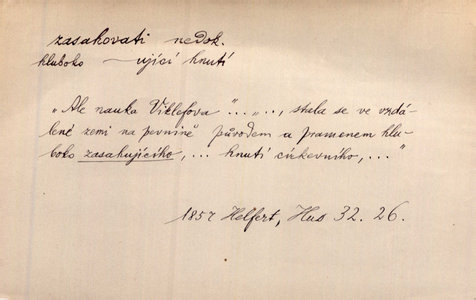 zasahovati nedok.
hluboko —ující hnutí
„Ale nauka Viklefova "... „.., stala se ve vzdá-
lené zemi na pevnině původem a pramenem hlu-
boko zasahujícího, ... hnutí církevního, ..."
1857 Helfert, Hus 32. 26.